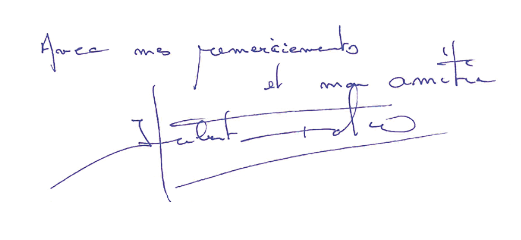 Avec mes remerciements
et mon amitié